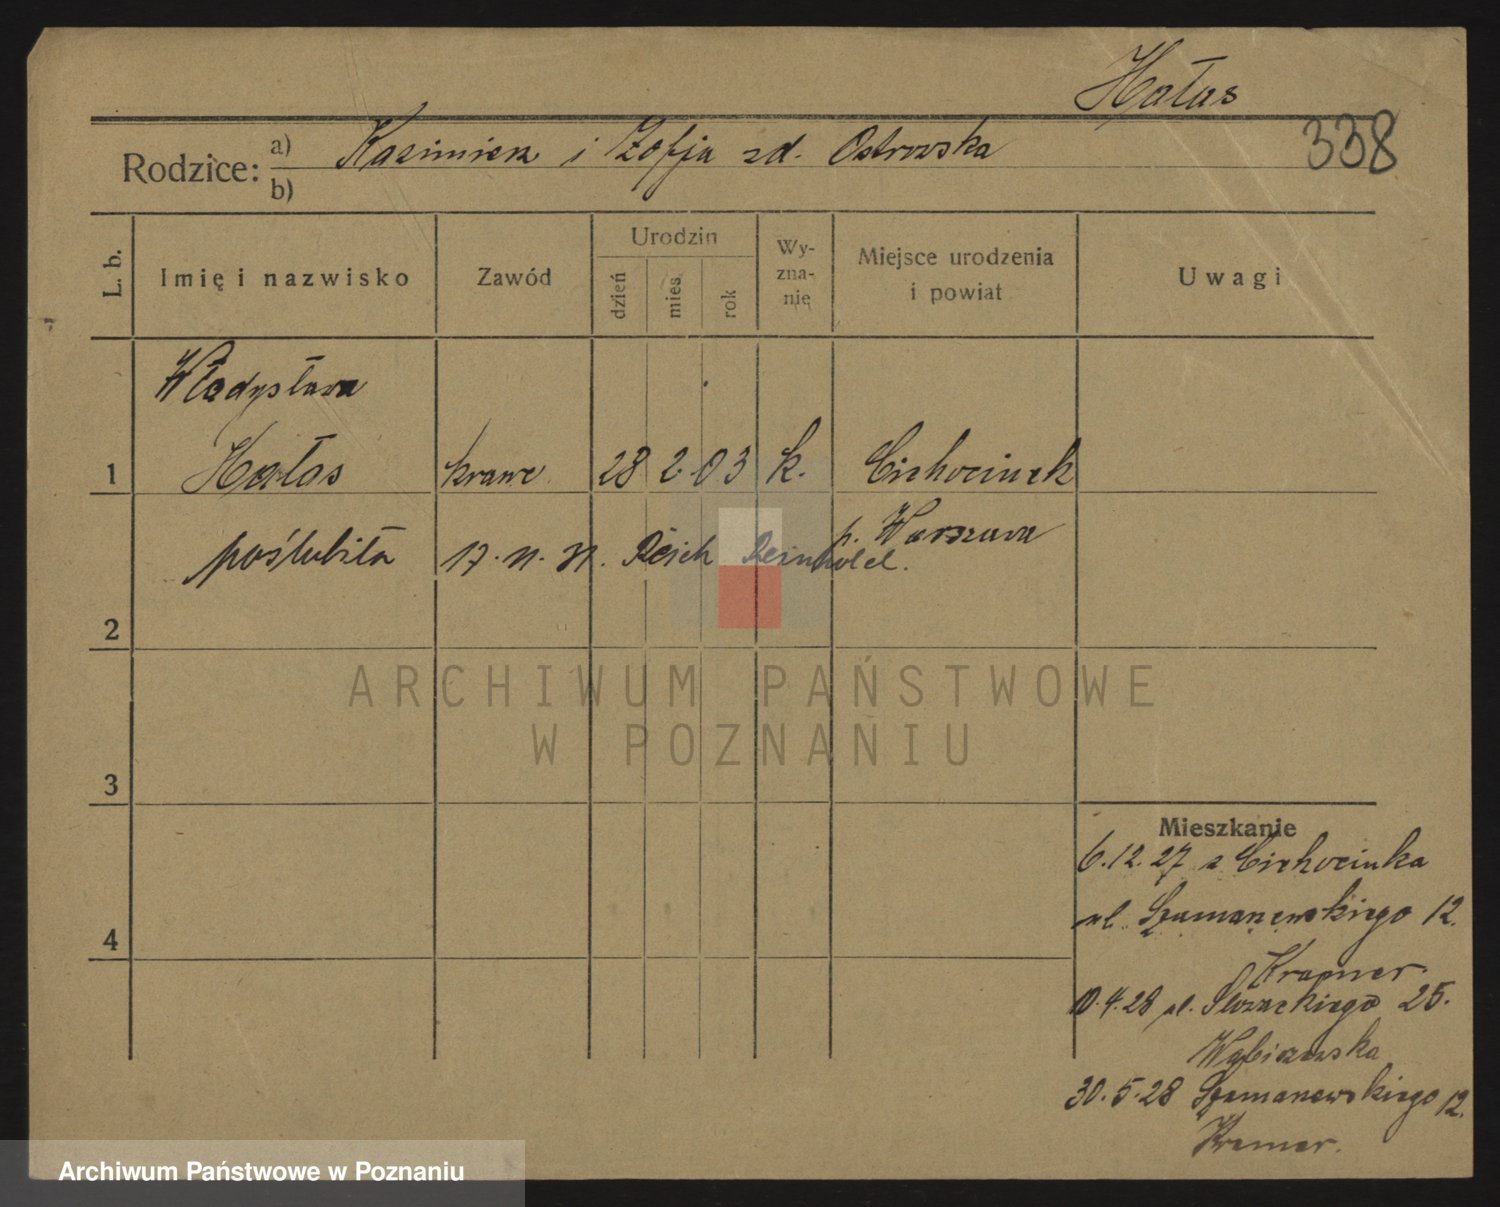 Hałas
338
Rodzice: a) Kazimierz i Zofja zd. Ostrowska
b)
L. b.
Imię i nazwisko
Zawód
Urodzin
dzień
mies.
rok
Wy-
zna-
nie
Miejsce urodzenia
i powiat
Uwagi
Władysława
1 Hałas krawc. 28 2 03 k. Ciechocinek
p. Warszawa
poślubiła 17. 11. 31. Reich Reinhold.
2
3
4
Mieszkanie
6.12.27 z Ciechocinka
ul. Szamarzewskiego 12.
10.4.28 ul. Słowackiego 25.
30.5.28 Szamarzewskiego 12.
Kramer.
ARCHIWUM PAŃSTWOWE
W POZNANIU
Archiwum Państwowe w Poznaniu